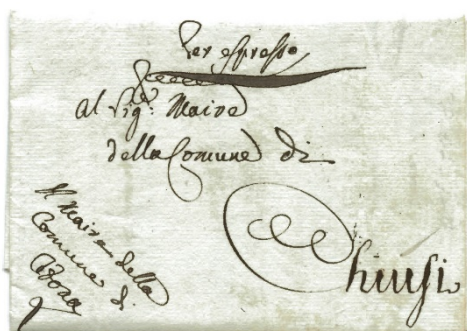 Per espresso
al Sig: Maire
della Comune di
Chiusi
Il Maire della
Comune di